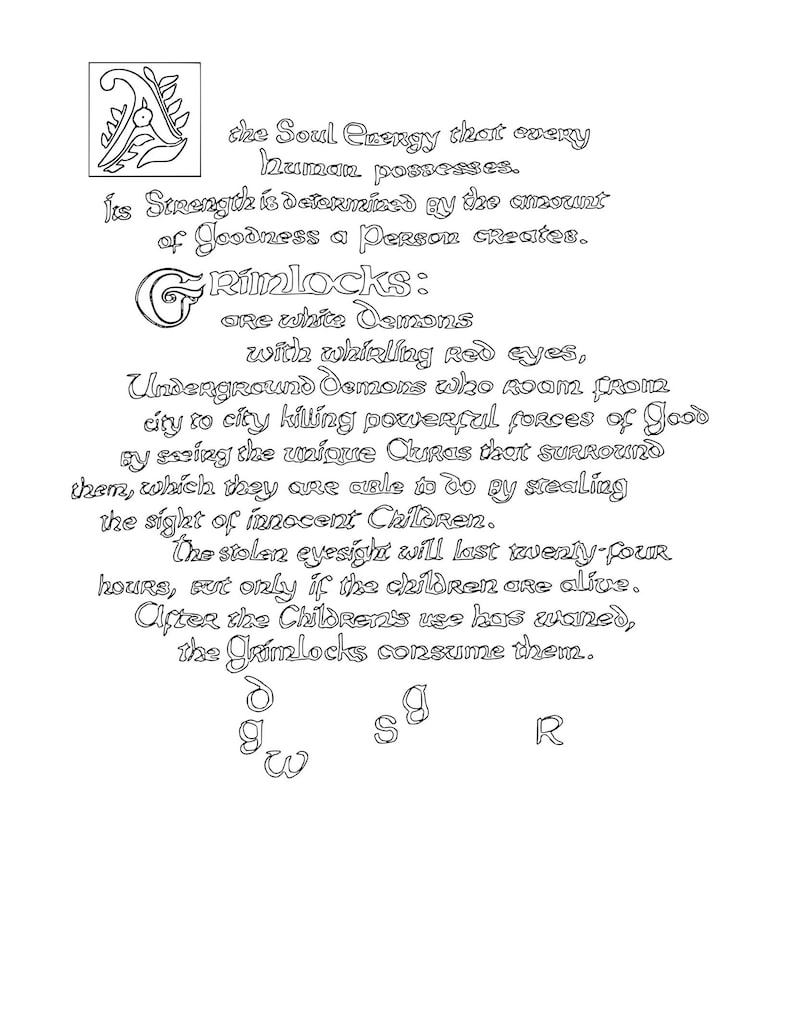 A
the Soul Energy that every
human possesses.
Its Strength is determined by the amount
of Goodness a Person creates.
Grimlocks:
are white Demons
with whirling red eyes,
Underground Demons who roam from
city to city killing powerful forces of Good
by seeing the unique Auras that surround
them, which they are able to do by stealing
the sight of innocent Children.
The stolen eyesight will last twenty-four
hours, but only if the children are alive.
After the Children's use has waned,
the Grimlocks consume them.
d g
g s R
w